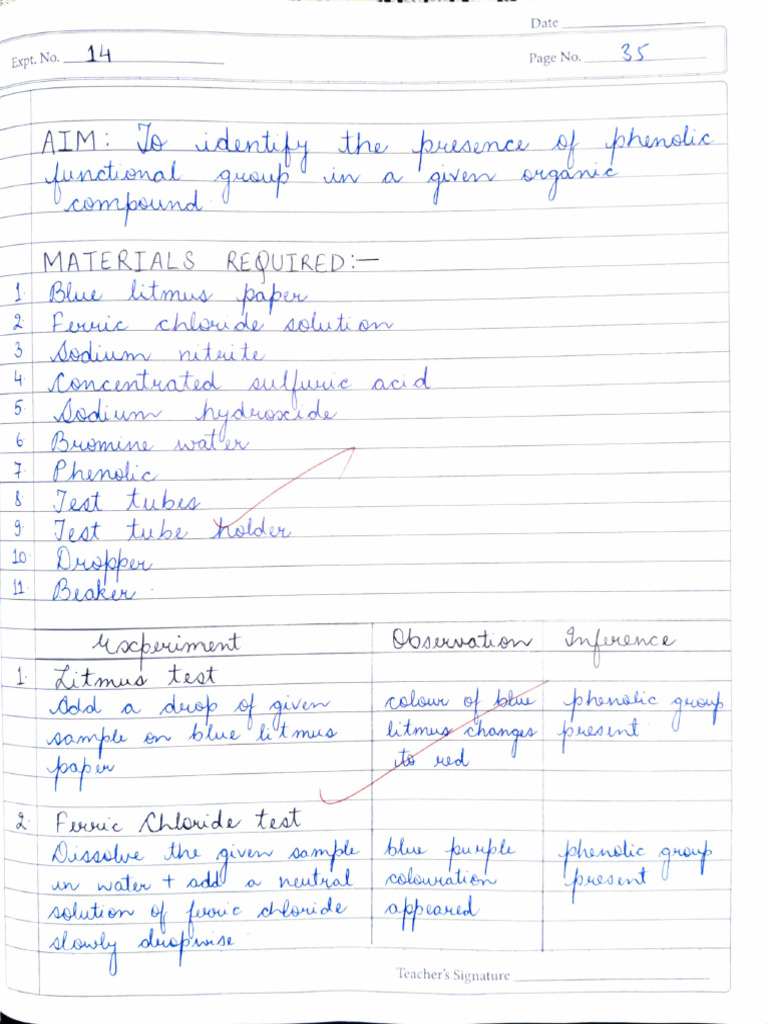 Date
Expt. No. 14
Page No. 35
AIM: To identify the presence of phenolic
functional group in a given organic
compound
MATERIALS REQUIRED:-
1. Blue litmus paper
2. Ferric chloride solution
3 Sodium nitrite
4 Concentrated sulfuric acid
5. Sodium hydroxide
6. Bromine water
7. Phenolic
8 Test tubes
9. Test tube holder
10. Dropper
11. Beaker
Experiment Observation Inference
1. Litmus test
Add a drop of given colour of blue phenolic group
sample on blue litmus litmus changes present
paper to red
2. Ferric Chloride test
Dissolve the given sample blue purple phenolic group
in water + add a neutral colouration present
solution of ferric chloride appeared
slowly dropwise
Teacher's Signature